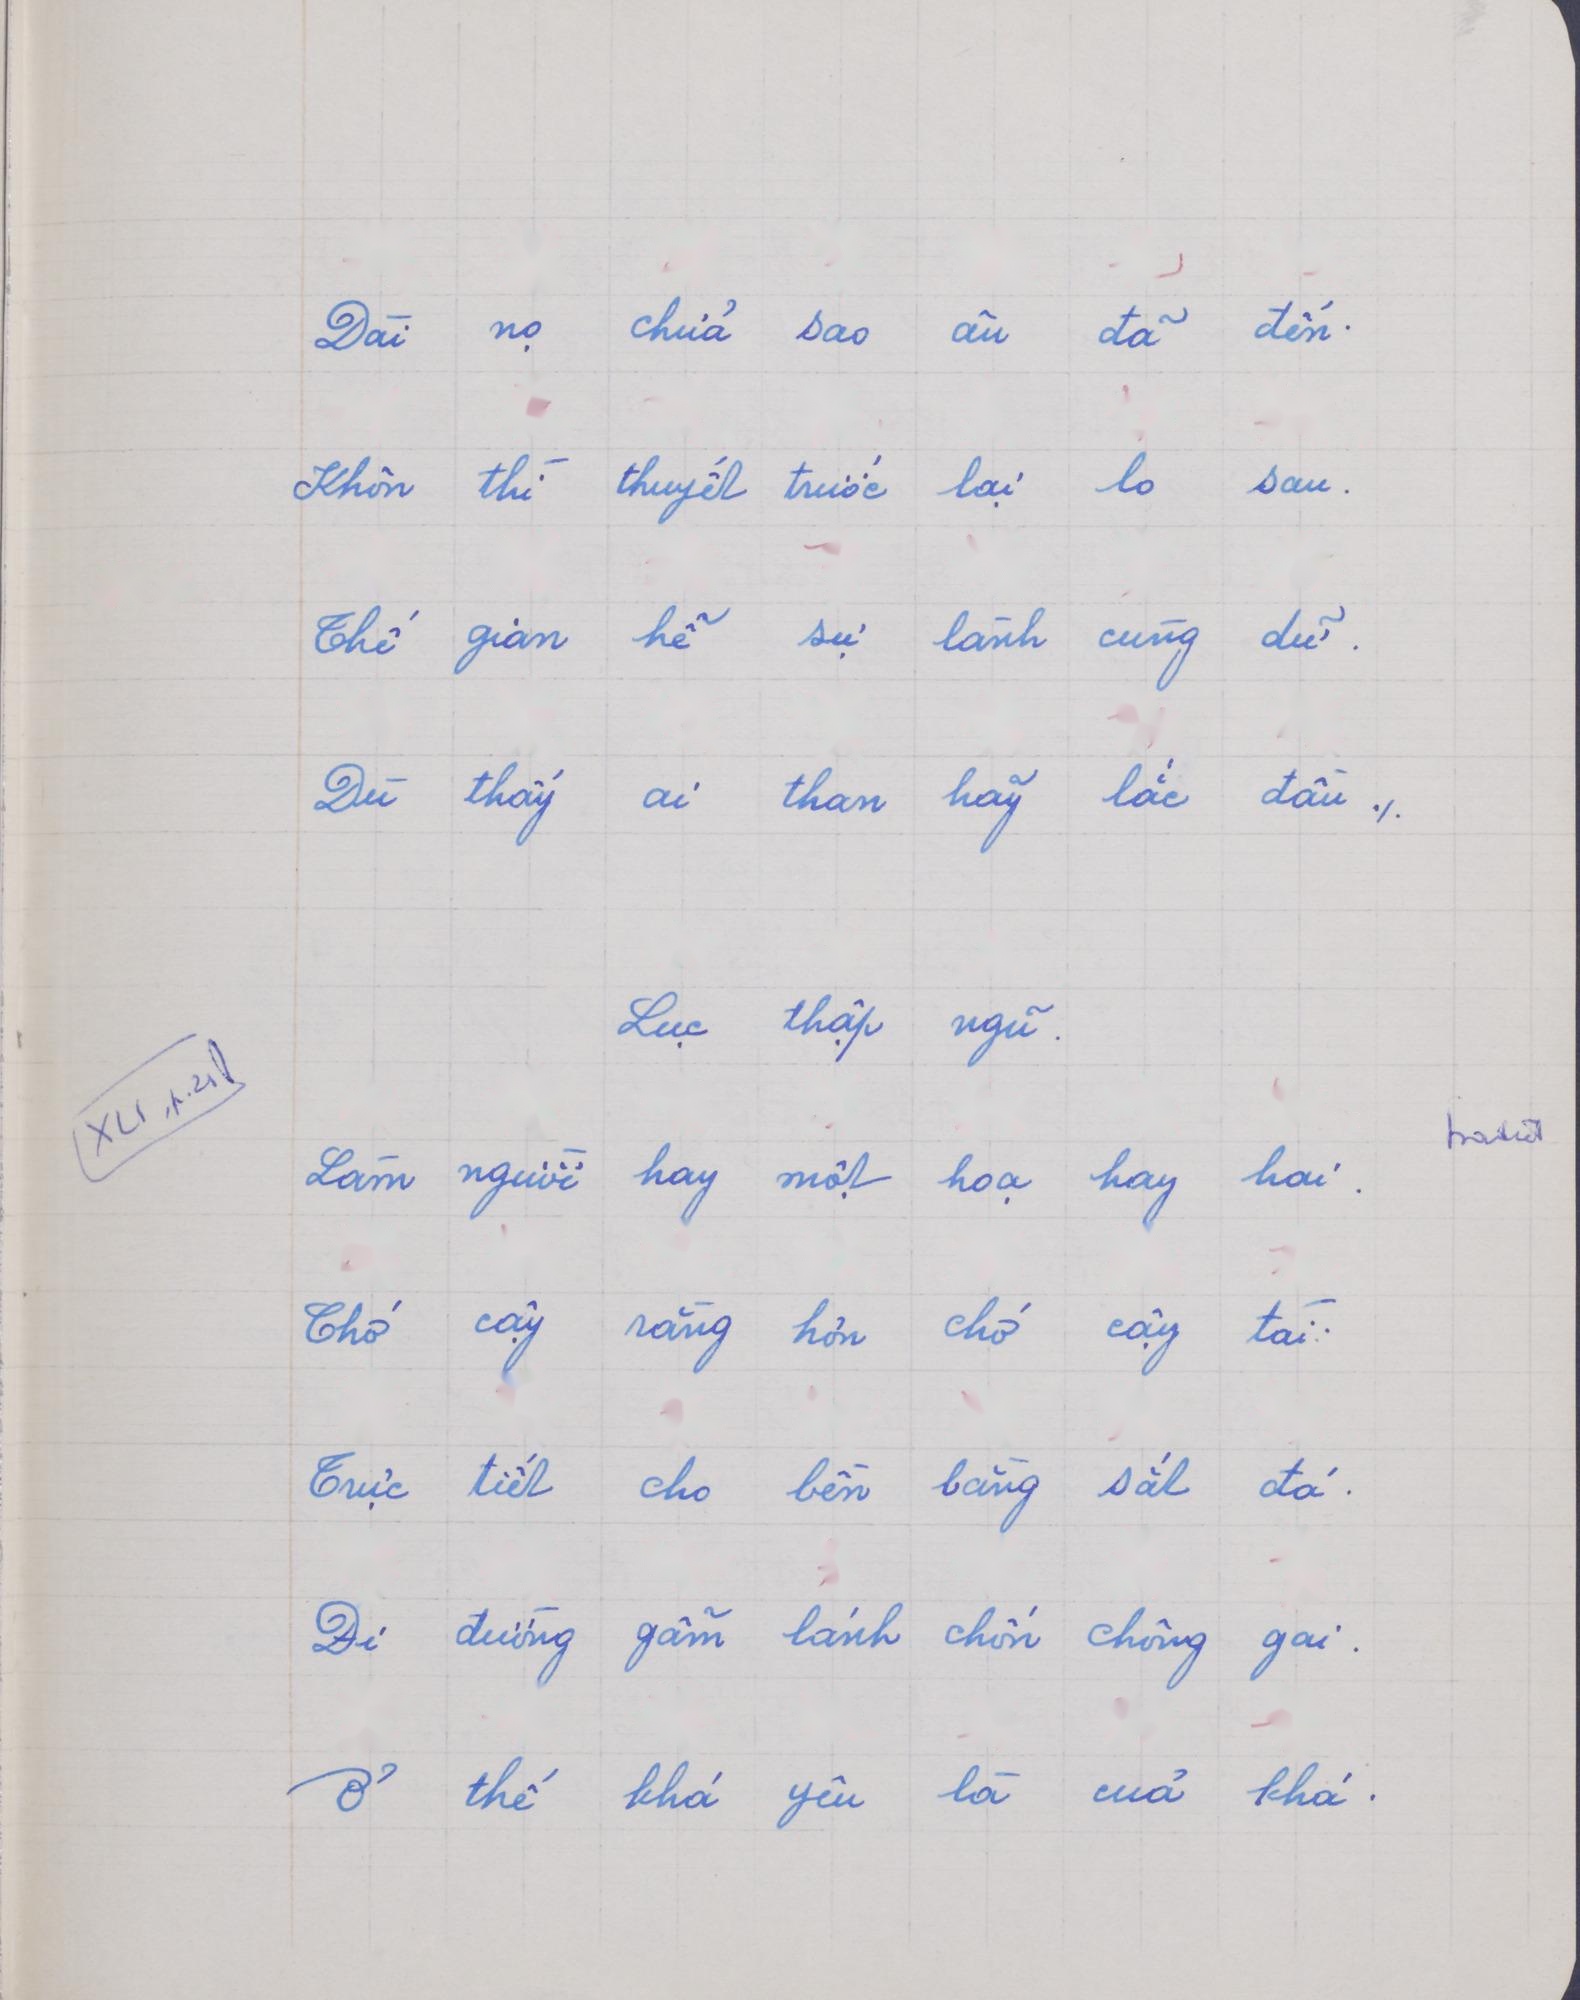 Dài nọ chửa sao âu đã đến.
Khôn thì thuyết trước lại lo sau.
Thế gian hễ sự lành cùng dữ.
Dù thấy ai than hãy lắc đầu ./.
Lục thập ngũ.
XLI, p.21
Làm người hay một hoạ hay hai.
Chớ cậy rằng hơn chớ cậy tài.
Trực tiết cho bền bằng sắt đá.
Đi đường gẫm lánh chốn chông gai.
Ở thế khá yêu là của khá.